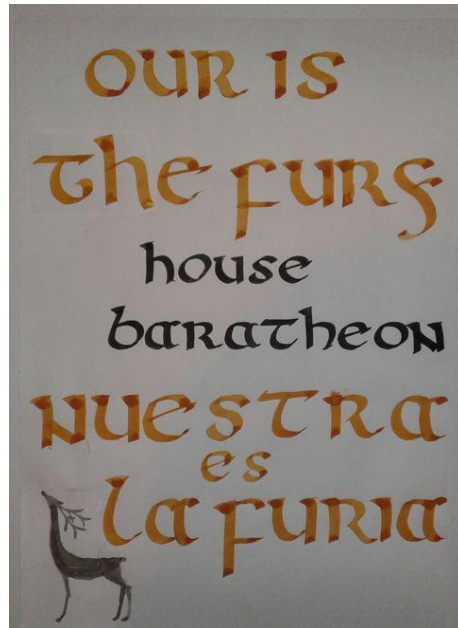 OUR IS
The FURY
house
baratheon
NUESTRA
es
la FURIA